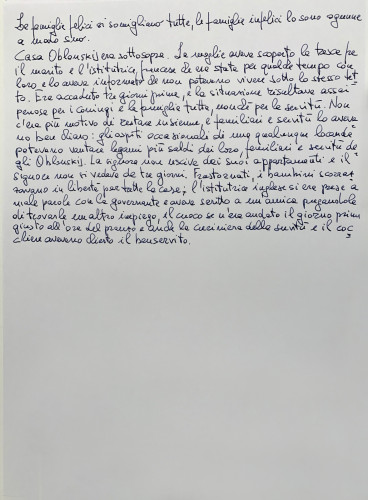 Le famiglie felici si somigliano tutte, le famiglie infelici lo sono ognuna
a modo suo.
Casa Oblonskij era sottosopra. La moglie aveva scoperto la tresca tra
il marito e l'istitutrice, francese che era stata per qualche tempo con
loro e lo aveva informato che non potevano vivere sotto lo stesso tet-
to. Era accaduto tre giorni prima, e la situazione risultava assai
penosa per i coniugi e la famiglia tutta, nonché per la servitù. Non
c'era più motivo di restare insieme, e familiari e servitù lo aveva-
no ben chiaro: gli ospiti occasionali di una qualunque locanda
potevano vantare legami più saldi dei loro, familiari e servitù de-
gli Oblonskij. La signora non usciva dai suoi appartamenti e il
signore non si vedeva da tre giorni. Frastornati, i bambini scoraz-
zavano in libertà per tutta la casa; l'istitutrice inglese si era presa a
male parole con la governante e aveva scritto a un'amica pregandola
di trovarle un altro impiego, il cuoco se n'era andato il giorno prima
giusto all'ora del pranzo e anche la cuciniera della servitù e il coc-
chiere avevano chiesto il benservito.